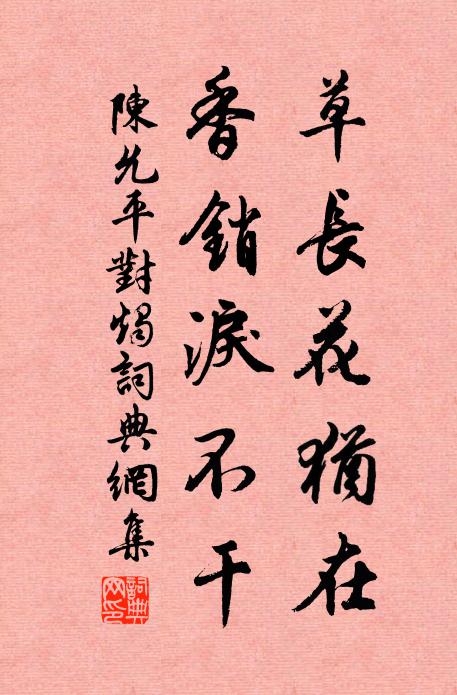 草長花猶在
香銷淚不干
陳允平對燭詞典網集
詞典網印